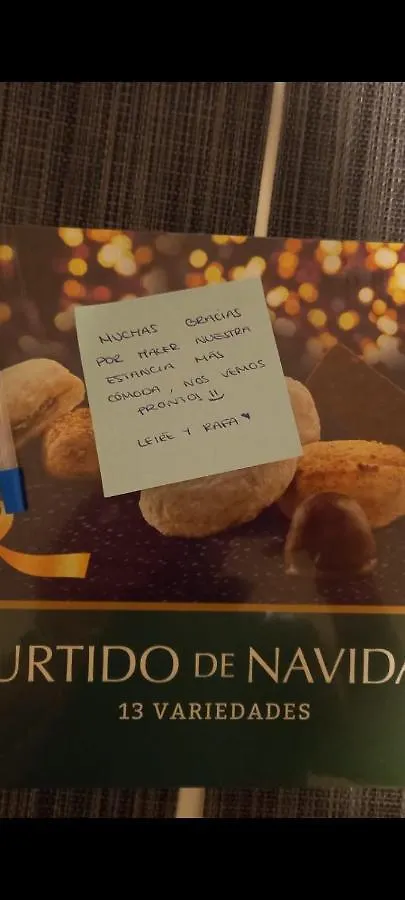 MUCHAS GRACIAS
POR HACER NUESTRA
ESTANCIA MÁS
CÓMODA, NOS VEMOS
PRONTO!!
LEIRE Y RAFA
URTIDO DE NAVIDA
13 VARIEDADES